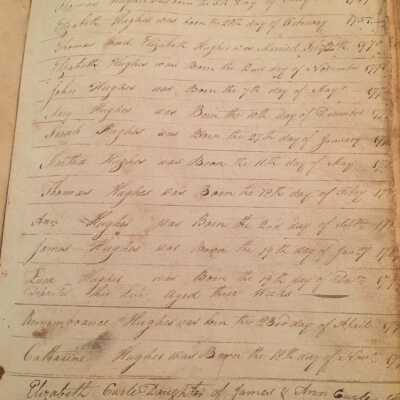 Thomas Hughes was born the day of
Elizabeth Hughes was born the 20th day of February 175
Thomas and Elizabeth Hughes was Married 177
Elizabeth Hughes was Born the 2nd day of November 177
John Hughes was Born the 7th day of May 177
Mary Hughes was Born the 10th day of December 177
Sarah Hughes was Born the 27th day of January 17
Martha Hughes was Born the 11th day of May 17
Thomas Hughes was Born the day of 17
Ann Hughes was Born the 2nd day of 17
James Hughes was Born the 19th day of Jany 17
Hughes was Born the 19th day of 179
Departed this life aged three Weeks
Remembrance Hughes was born the 23rd day of April 17
Catharine Hughes was Born the 18th day of Novr 17
Elizabeth Daughter of James & Ann